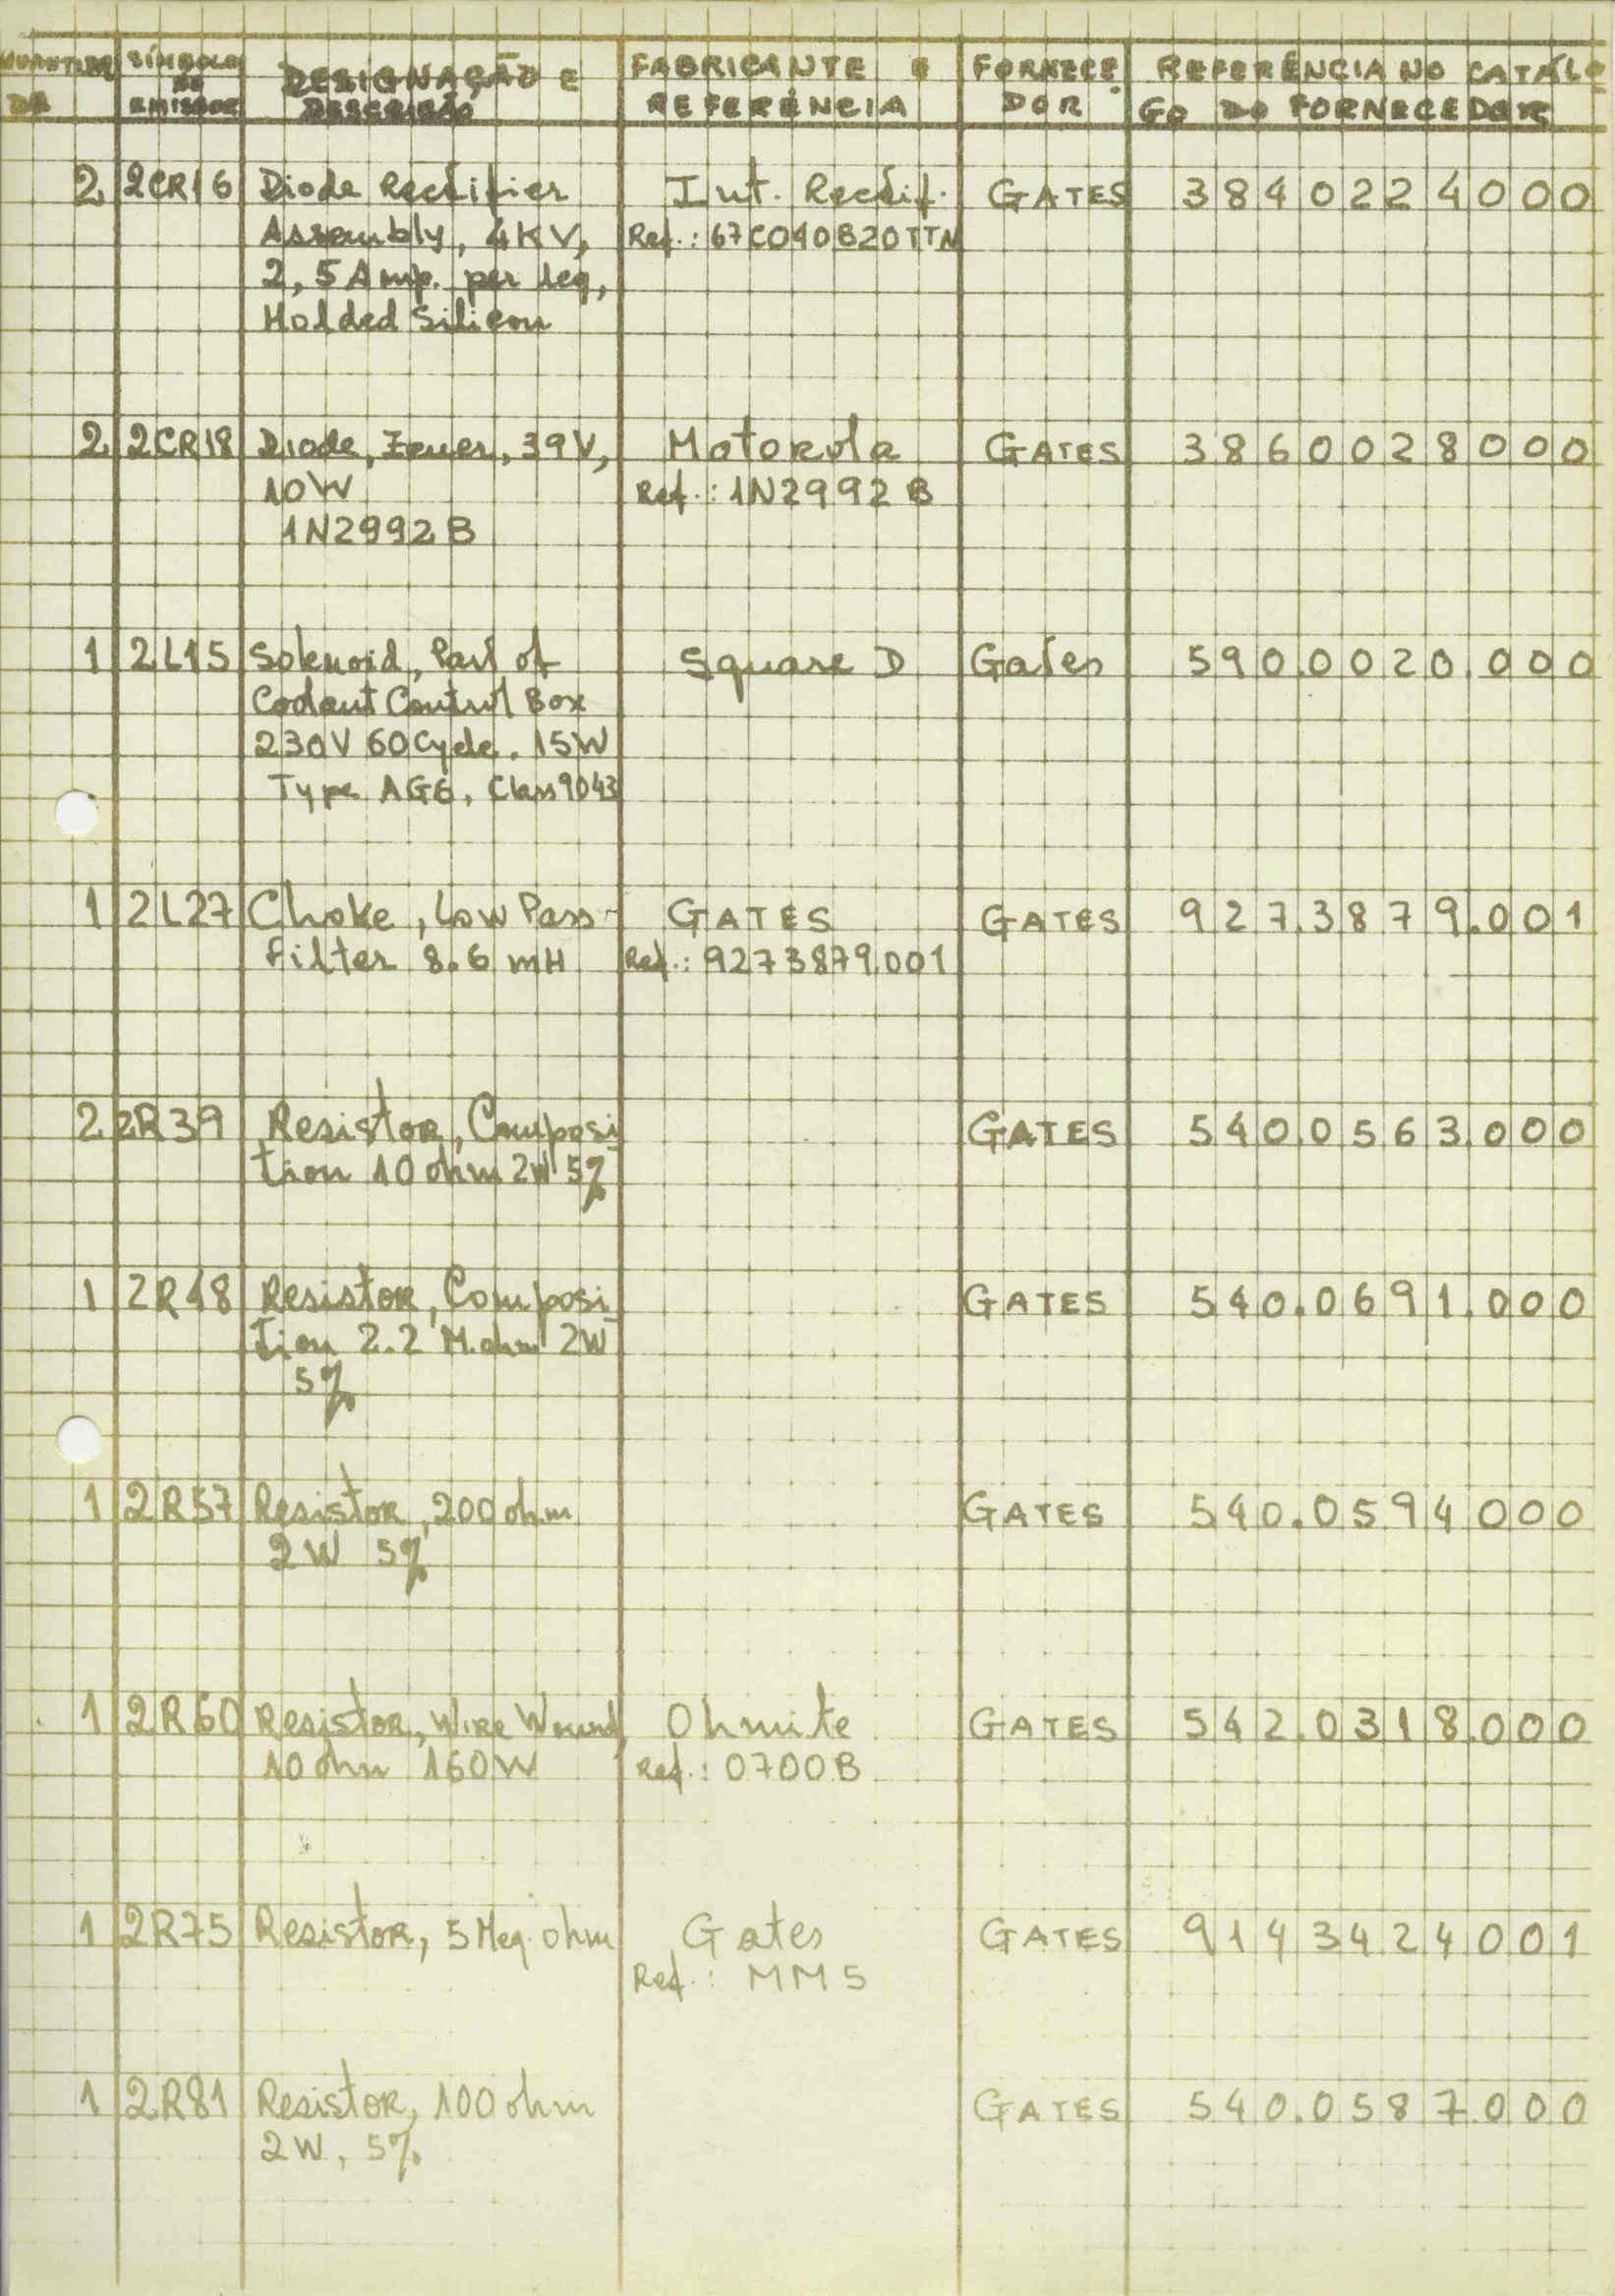 QUANTIDA SÍMBOLO DESIGNAÇÃO E FABRICANTE E FORNECE REFERÊNCIA NO CATÁLO
DE NO EMISSOR DESCRIÇÃO REFERÊNCIA DOR GO DO FORNECEDOR
2 2CR16 Diode Rectifier Int. Rectif. GATES 3840224000
Assembly, 4KV, Ref.: 67C040B20TTN
2,5 Amp. per leg,
Molded Silicon
2 2CR18 Diode, Zener, 39V, Motorola GATES 3860028000
10W Ref.: 1N2992B
1N2992B
1 2L15 Solenoid, Part of Square D Gates 590.0020.000
Coolant Control Box
230V 60 Cycle. 15W
Type AG6, Class 9043
1 2L27 Choke, Low Pass- GATES GATES 927.3879.001
filter 8.6 mH Ref.: 9273879.001
2 2R39 Resistor, Composi GATES 540.0563.000
tion 10 ohm 2W 5%
1 2R48 Resistor, Composi GATES 540.0691.000
tion 2.2 M.ohm 2W
5%
1 2R57 Resistor, 200 ohm GATES 540.0594000
2W 5%
1 2R60 Resistor, Wire Wound, Ohmite GATES 542.0318.000
10 ohm 160W Ref.: 0700B
1 2R75 Resistor, 5 Meg. ohm Gates GATES 9143424001
Ref.: MM5
1 2R81 Resistor, 100 ohm GATES 540.0587.000
2W, 5%